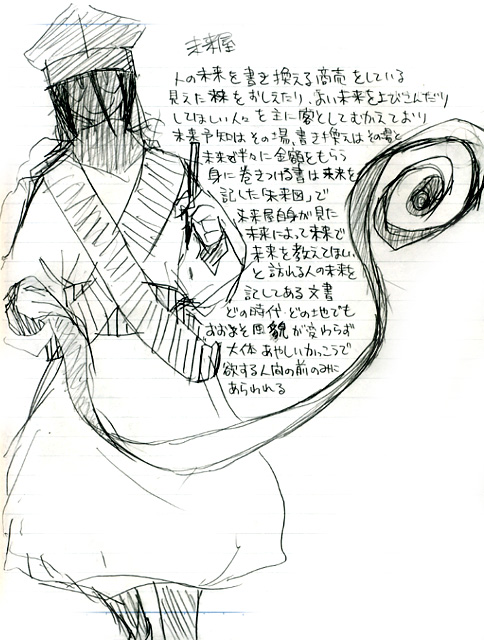 未来屋
人の未来を書き換える商売をしている
見えた未来をおしえたり、よい未来をよびこんだり
してほしい人々を主に客としてむかえており
未来予知はその場、書き換えはその書と
未来が半々に金額をもらう
身に巻きつける書は未来を
記した「未来図」で
未来屋自身が見た
未来によって未来で
未来を教えてほしい
と訪れる人の未来を
記してある文書
どの時代・どの地でも
おおよそ風貌が変わらず
大体あやしいかっこうで
欲する人間の前のみに
あらわれる